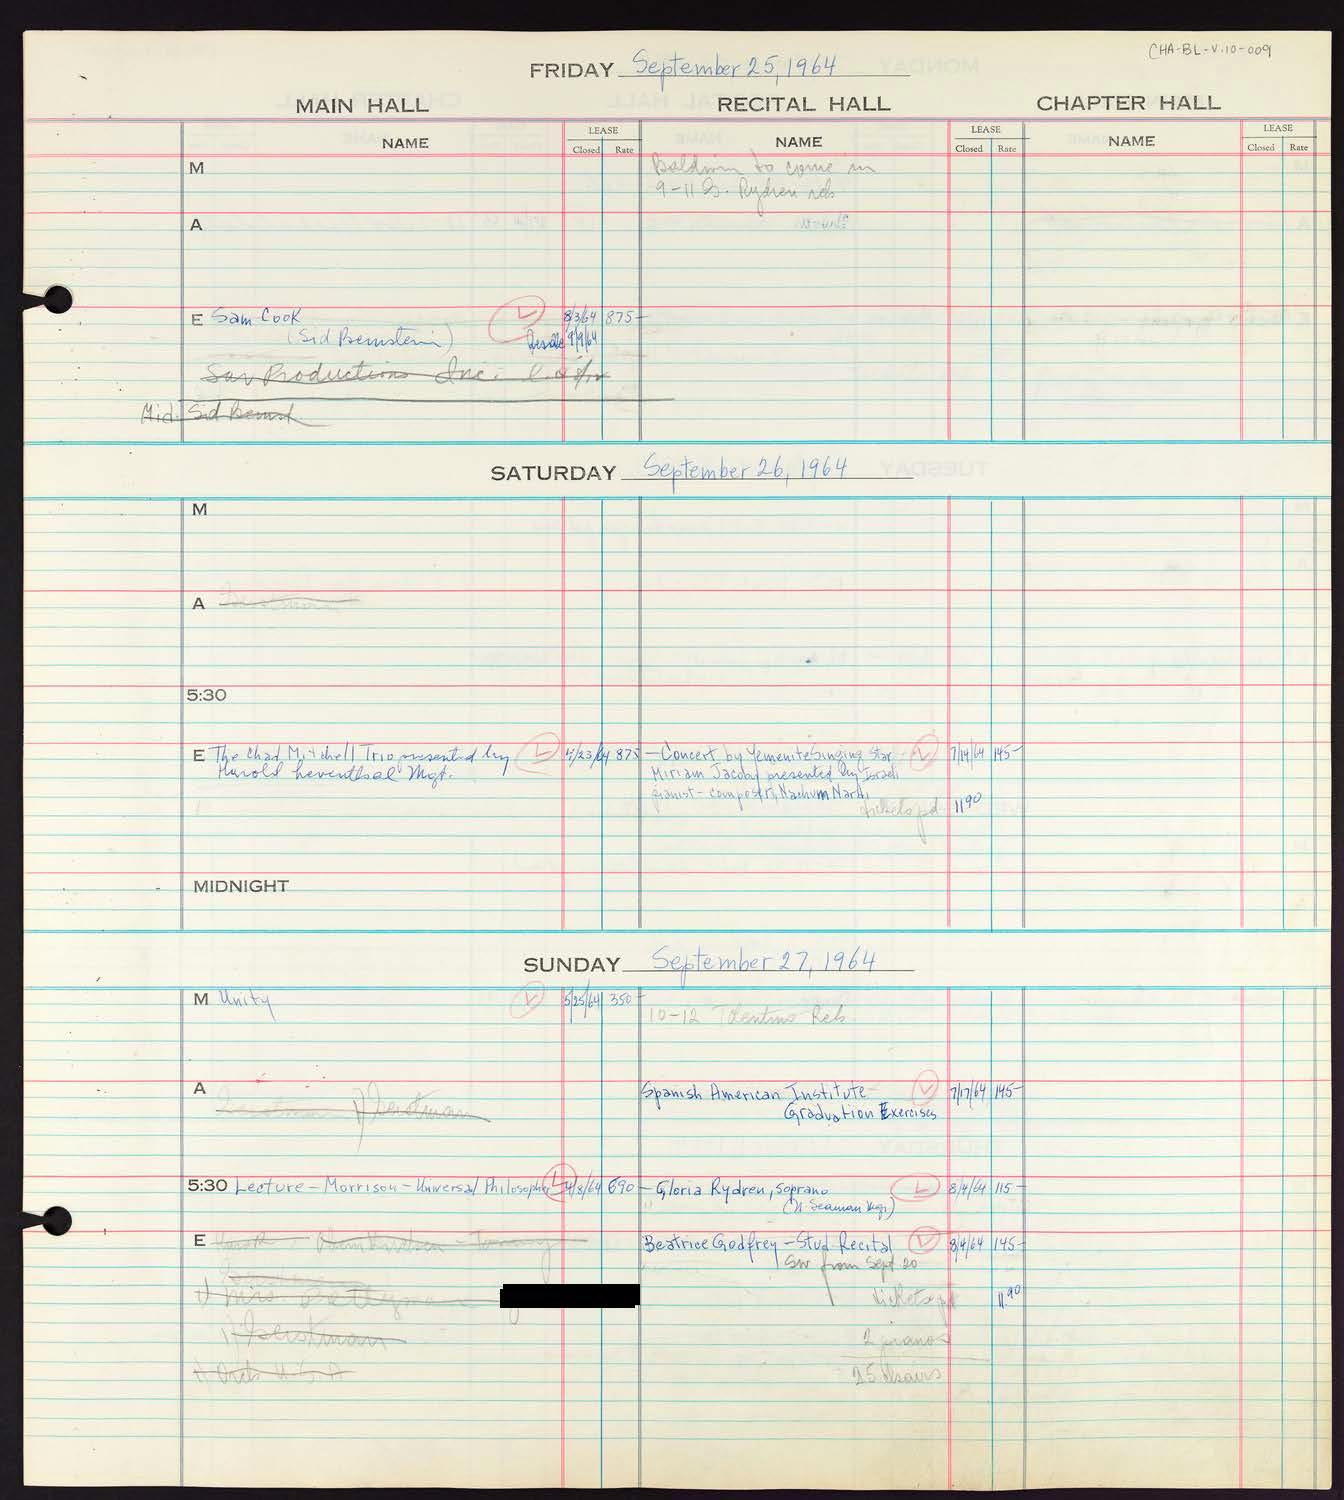 CHA-BL-V.10-009
FRIDAY September 25, 1964
MAIN HALL RECITAL HALL CHAPTER HALL
NAME LEASE Closed Rate NAME LEASE Closed Rate NAME LEASE Closed Rate
M Baldwin to come in
9-11 G. Rydren reh
A
E Sam Cook 8/3/64 875-
(Sid Bernstein) 9/9/64
Sav Productions Inc.
Mid. Sid Bernst
SATURDAY September 26, 1964
M
A
5:30
E The Chad Mitchell Trio presented by 4/23/64 875 - Concert by Yemenite Singing Star 7/14/64 145-
Harold Leventhal Mgt. Miriam Jacoby presented by Israeli
pianist-composer, Nachum Nardi
tickets pd 11.90
MIDNIGHT
SUNDAY September 27, 1964
M Unity 5/25/64 350-
10-12 Tolentino Reh.
A Spanish American Institute- 7/17/64 145-
Gerstman Graduation Exercises
5:30 Lecture - Morrison - Universal Philosophy 4/8/64 690 - Gloria Rydren, soprano 8/4/64 115-
(N. Seaman Mgr)
E Beatrice Godfrey - Stud Recital 8/4/64 145-
SW from Sept 20
Mrs. tickets pd 11.90
Gerstman 2 pianos
Orch U.S.A 25 chairs